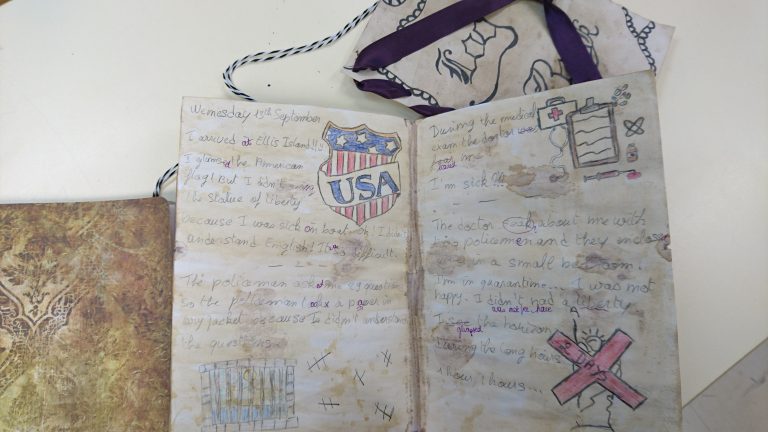 Wemesday 15th September
I arrived at Ellis Island!!!
I glimsed the American
flag! But I didn't
the statue of Liberty
USA
because I was sick on boat oh! I didn't
understand English! It was so difficult.
— 2 —
The policeman ask me 29 question
so the policeman a paper in
my jacket because I didn't understand
the questions
During the medical
exam the doctor
I'm sick
The doctor about me with
policemen and they
in a small
I'm in quarantine... I was not
happy. I didn't had a liberty
was not free have
I the horizon
glimpsed
During the long hours
1 hour, hours...
DAY